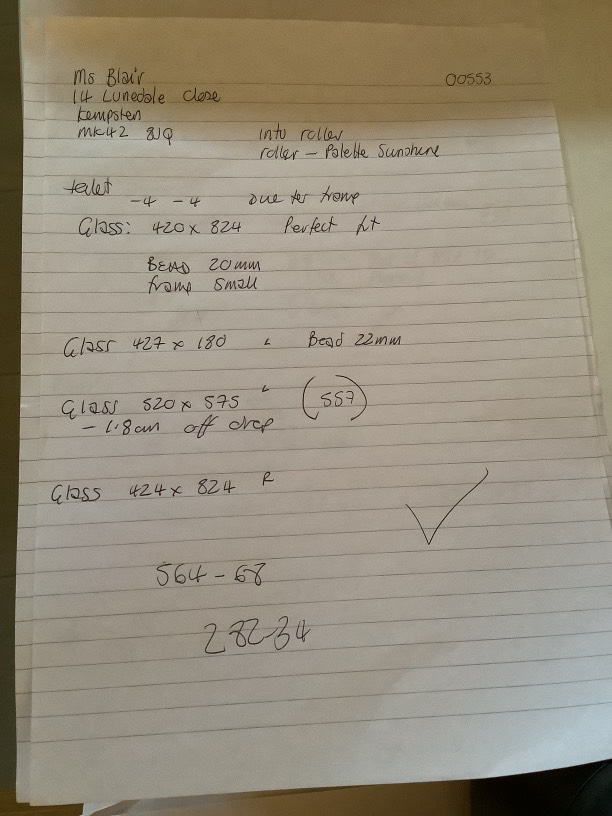 Ms Blair
00553
14 Lunedale Close
Kempston
MK42 8JQ
Intu roller
roller - Palette Sunshine
toilet
-4 -4 Due to frame
Glass: 420 x 824 Perfect fit
BEAD 20mm
frame small
Glass 427 x 180 L Bead 22mm
Glass 520 x 575 L (557)
- 1.8cm off drop
Glass 424 x 824 R
564-68
282-34